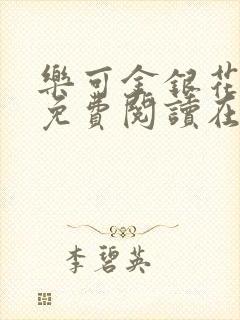 樂可金銀花
免費閱讀在
李碧英